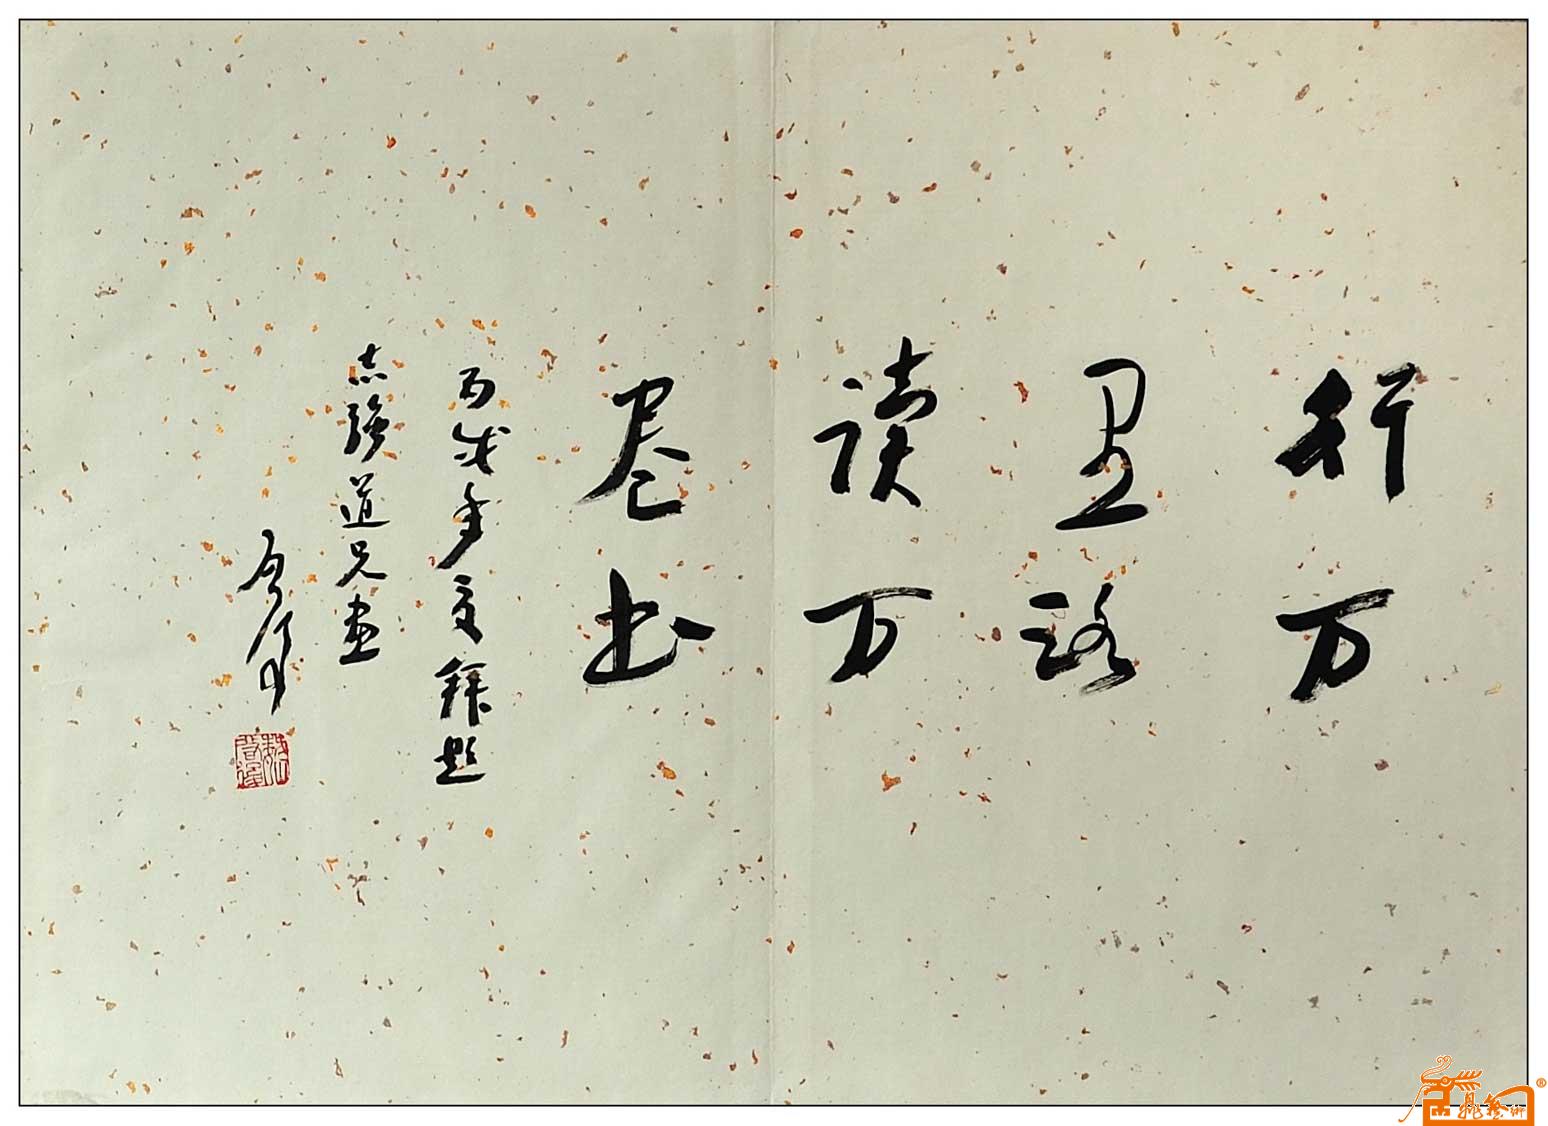 行万
里路
读万
卷书
丙戌年夏拜题
志强道兄画